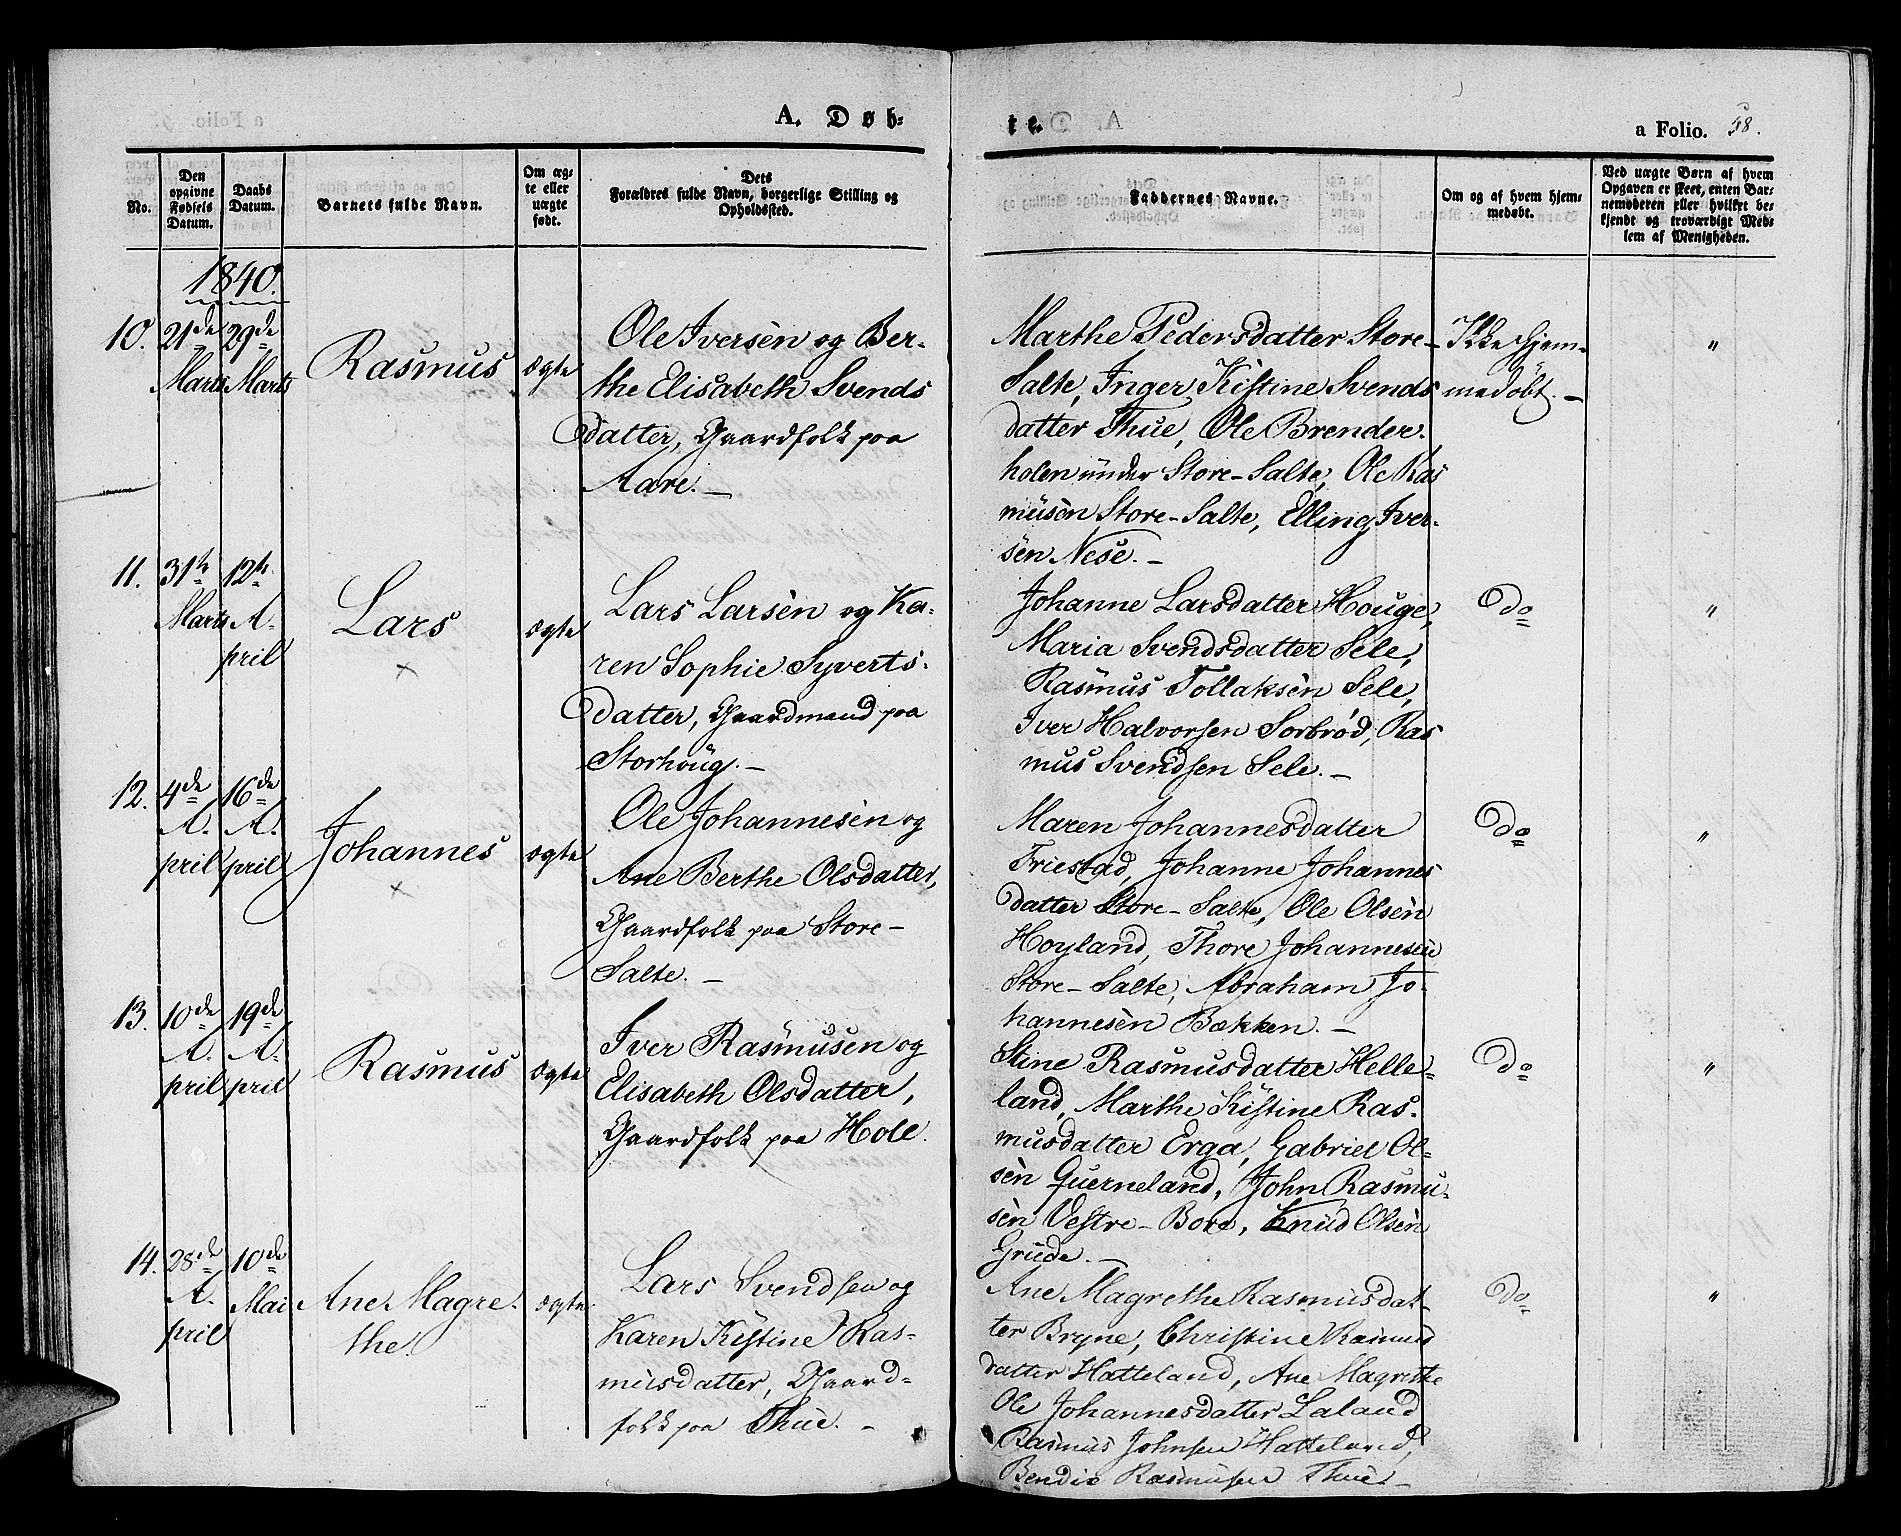 A. Døb-
te.
a Folio. 58.
No.
Den opgivne Fødsels Datum.
Daabs Datum.
Barnets fulde Navn.
Om ægte eller uægte født.
Dets Forældres fulde Navn, borgerlige Stilling og Opholdssted.
Faddernes Navne.
Om og af hvem hjemmedøbt.
Ved uægte Børn af hvem Opgaven er skeet, enten Barnemoderen eller hvilket bekjendt og troværdigt Medlem af Menigheden.
1840.
10. 21de Marts 29de Marts
Rasmus
ægte
Ole Iversen og Ber-
the Elisabeth Svends
datter, Gaardfolk paa
Aare. –
Marthe Pedersdatter Store-
Salte, Inger Kistine Svends
datter Thue, Ole Brender-
holen under Store-Salte, Ole Ras
musen Store-Salte, Elling Iver-
sen Nese. –
Ikke hjem-
medøbt. –
"
11. 31te Marts 12te A-
pril
Lars
ægte
Lars Larsen og Ka-
ren Sophie Syverts-
datter, Gaardmand paa
Storhoug. –
Johanne Larsdatter Houge,
Maria Svendsdatter Sele,
Rasmus Tollaksen Sele,
Iver Halvorsen Sorbrød, Ras
mus Svendsen Sele. –
Do
"
12. 4de A-
pril 16de A-
pril
Johannes
ægte
Ole Johannesen og
Ane Berthe Olsdatter,
Gaardfolk paa Store-
Salte. –
Maren Johannesdatter
Friestad, Johanne Johannes
datter Store-Salte, Ole Olsen
Hoyland, Thore Johannesen
Store-Salte, Abraham Jo-
hannesen Bækken. –
Do
"
13. 10de A-
pril 19de A-
pril
Rasmus
ægte
Iver Rasmusen og
Elisabeth Olsdatter,
Gaardfolk paa Hole.
Stine Rasmusdatter Helle-
land, Marthe Kistine Ras-
musdatter Erga, Gabriel Ol-
sen Querneland, John Rasmu-
sen Vestre-Bore, Knud Olsen
Grude. –
Do
"
14. 28de A-
pril 10de Mai
Ane Magre-
the.
ægte
Lars Svendsen og
Karen Kistine Ras-
musdatter, Gaard-
folk paa Thue. –
Ane Magrethe Rasmusdat-
ter Bryne, Christine Rasmus
datter Hatteland, Ane Magrethe
Ole Johannesdatter Laland
Rasmus Johnsen Hatteland,
Bendix Rasmusen Thue. –
Do
"